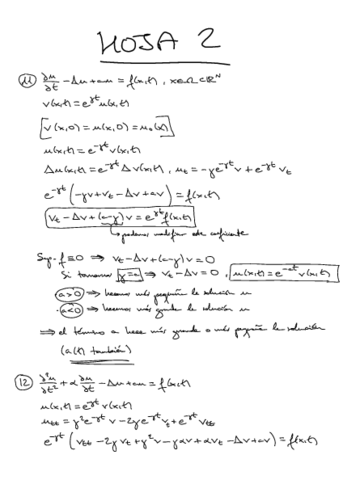 HOJA 2
⑪ ∂u/∂t - Δu + au = f(x,t), x∈Ω⊂ℝᴺ
v(x,t) = e^{γt} u(x,t)
[v(x,0) = u(x,0) = u₀(x)]
u(x,t) = e^{-γt} v(x,t)
Δu(x,t) = e^{-γt} Δv(x,t), u_t = -γe^{-γt} v + e^{-γt} v_t
e^{-γt} (-γv + v_t - Δv + av) = f(x,t)
v_t - Δv + (a-γ)v = e^{γt} f(x,t)
↳ podemos modificar este coeficiente
Sup. f≡0 ⇒ v_t - Δv + (a-γ)v = 0
Si tomamos γ=a ⇒ v_t - Δv = 0, u(x,t) = e^{-at} v(x,t)
a>0 ⇒ hacemos más pequeña la solución u
a<0 ⇒ hacemos más grande la solución u
⇒ el término a hace más grande o más pequeña la solución
(a(t) también)
⑫ ∂²u/∂t² + α ∂u/∂t - Δu + au = f(x,t)
u(x,t) = e^{-γt} v(x,t)
u_tt = γ²e^{-γt} v - 2γe^{-γt} v_t + e^{-γt} v_tt
e^{-γt} (v_tt - 2γv_t + γ²v - γαv + αv_t - Δv + av) = f(x,t)